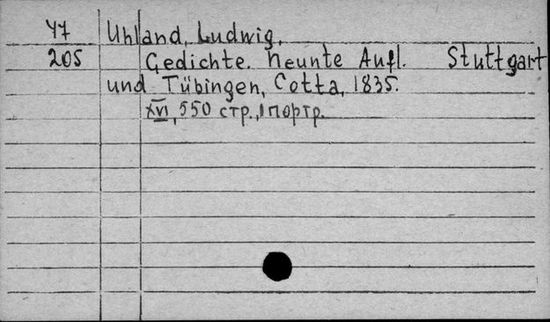 У7 Uhland, Ludwig.
205 Gedichte. Neunte Aufl. Stuttgart
und Tübingen, Cotta, 1835.
XVI, 550 стр., 1 портр.